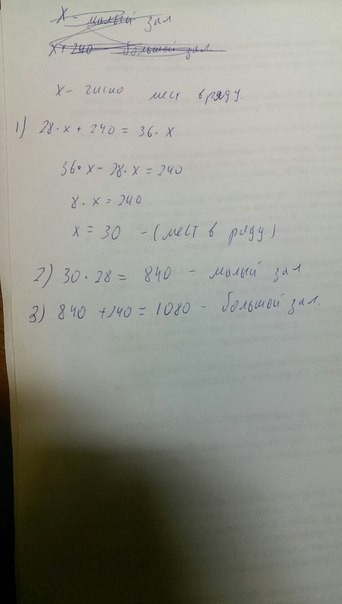 x - малый зал
x + 240 - большой зал
x - число мест в ряду.
1) 28 · x + 240 = 36 · x
36 · x - 28 · x = 240
8 · x = 240
x = 30 - (мест в ряду)
2) 30 · 28 = 840 - малый зал
3) 840 + 240 = 1080 - большой зал.